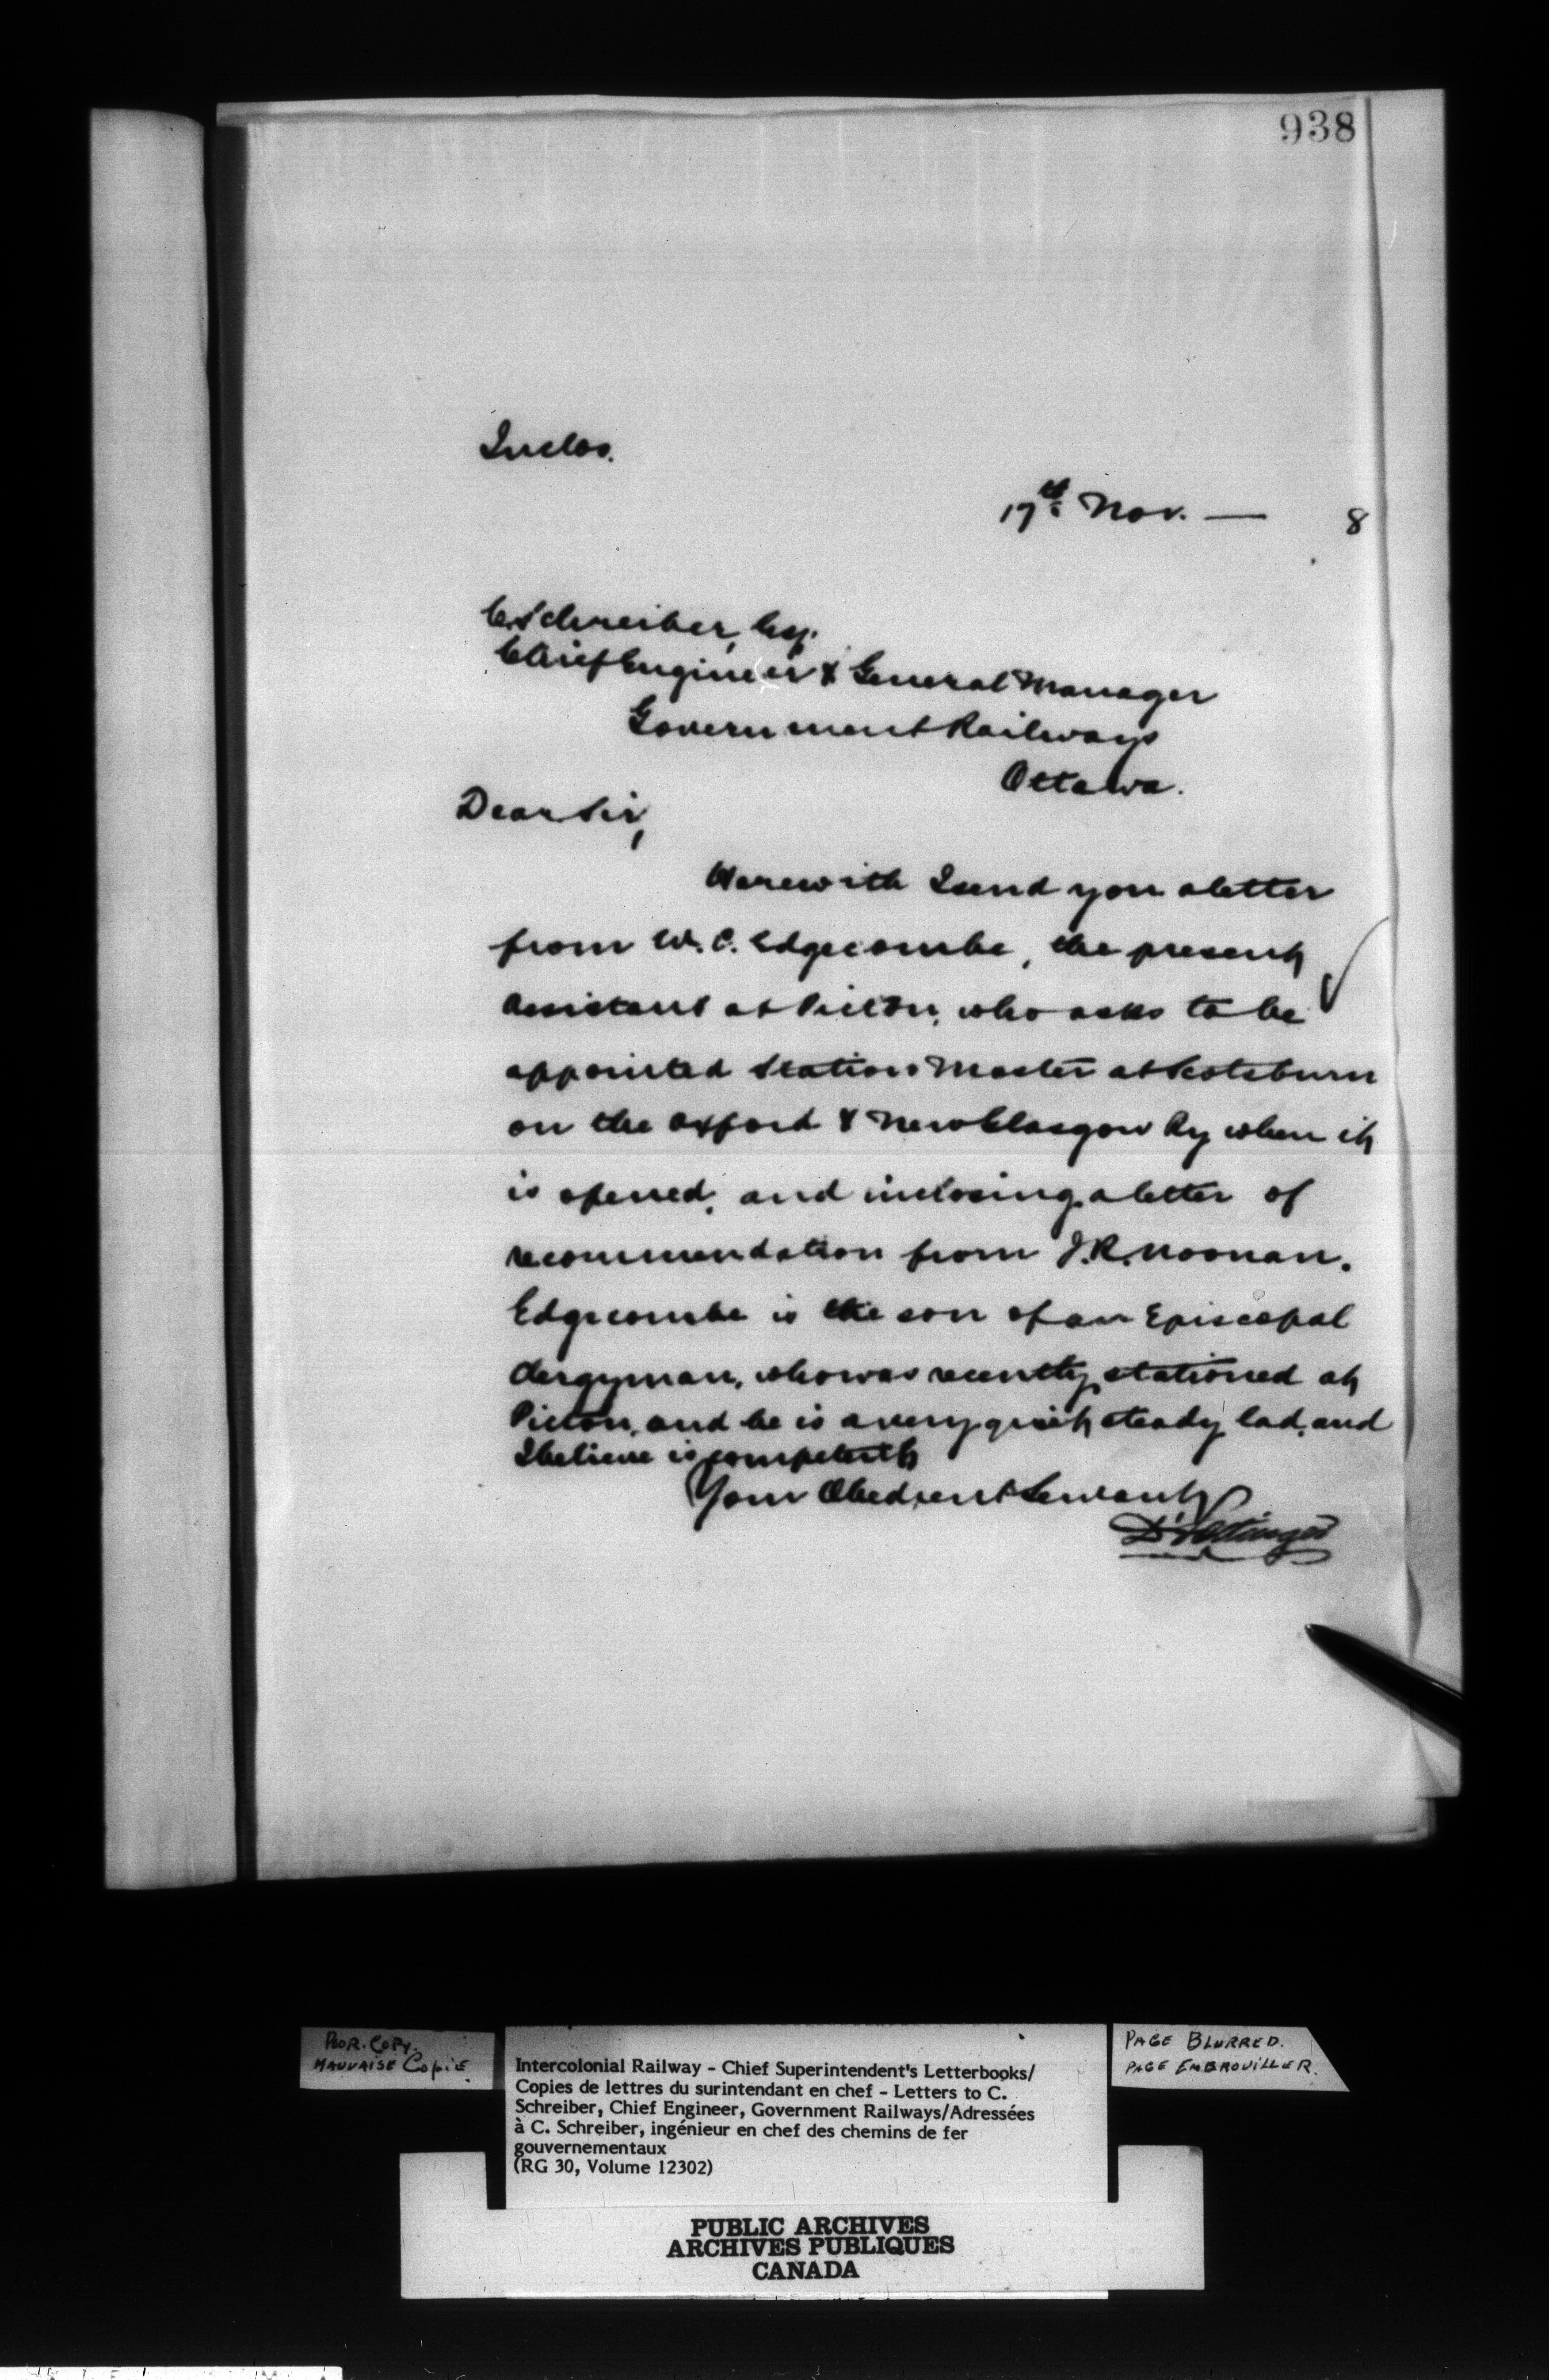 938
Inclos.
17th Nov. — 8
C. Schreiber, Esq.
Chief Engineer & General Manager
Government Railways
Ottawa.
Dear Sir,
Herewith I send you a letter
from W. C. Edgecombe, the present
Assistant at Pictou, who asks to be
appointed Station Master at Scotsburn
on the Oxford & New Glasgow Ry when it
is opened, and inclosing a letter of
recommendation from J. R. Noonan.
Edgecombe is the son of an Episcopal
clergyman, who was recently stationed at
Pictou, and he is a very quiet steady lad, and
I believe is competent
Your Obedient Servant
D Pottinger
POOR COPY.
MAUVAISE COPIE
Intercolonial Railway - Chief Superintendent's Letterbooks/
Copies de lettres du surintendant en chef - Letters to C.
Schreiber, Chief Engineer, Government Railways/Adressées
à C. Schreiber, ingénieur en chef des chemins de fer
gouvernementaux
(RG 30, Volume 12302)
PAGE BLURRED.
PAGE EMBROUILLER.
PUBLIC ARCHIVES
ARCHIVES PUBLIQUES
CANADA